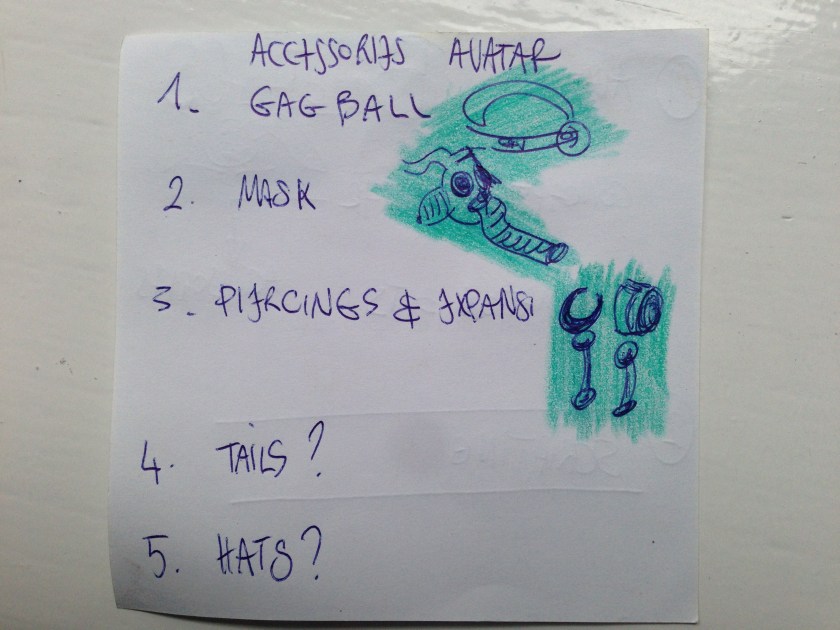 ACCESSORIES AVATAR
1. GAG BALL
2. MASK
3. PIERCINGS & EXPANSI
4. TAILS?
5. HATS?